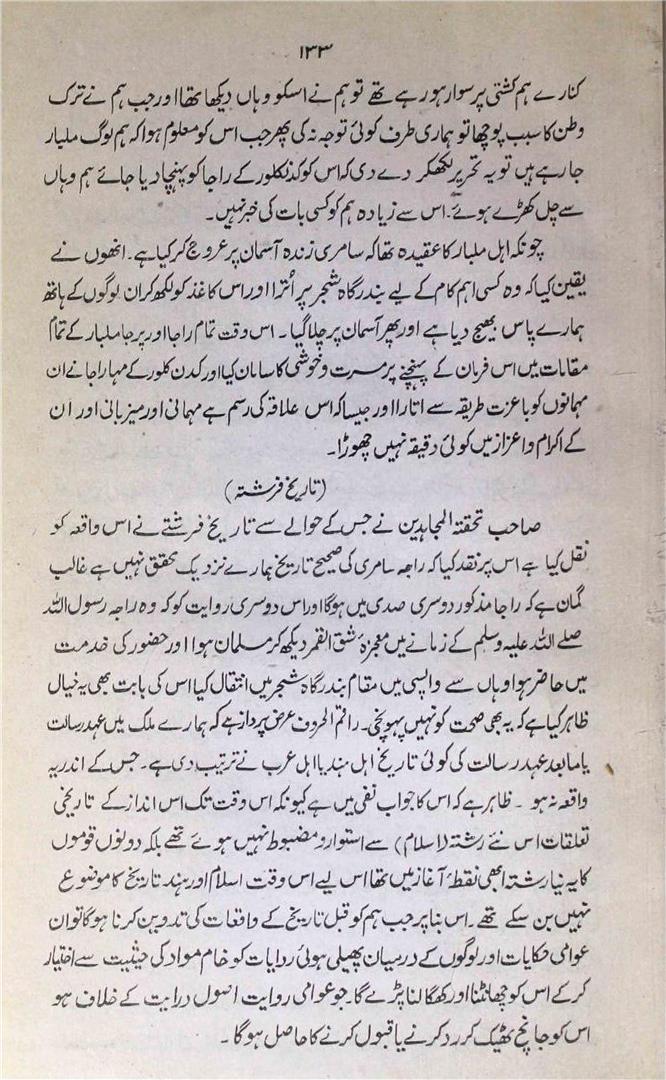 ۱۳۳
کنارے ہم کشتی پر سوار ہو رہے تھے تو ہم نے اسکو وہاں دیکھا تھا اور جب ہم نے ترک
وطن کا سبب پوچھا تو ہماری طرف کوئی توجہ نہ کی پھر جب اس کو معلوم ہوا کہ ہم لوگ ملیبار
جا رہے ہیں تو یہ تحریر لکھکر دے دی کہ اس کو کدنکلور کے راجا کو پہنچا دیا جائے ہم وہاں
سے چل کھڑے ہوئے۔ اس سے زیادہ ہم کو کسی بات کی خبر نہیں۔
چونکہ اہل ملیبار کا عقیدہ تھا کہ سامری زندہ آسمان پر عروج کر گیا ہے۔ انھوں نے
یقین کیا کہ وہ کسی اہم کام کے لیے بندرگاہ شجر پر اُترا اور اس کاغذ کو لکھ کر ان لوگوں کے ہاتھ
ہمارے پاس بھیج دیا ہے اور پھر آسمان پر چلا گیا۔ اس وقت تمام راجا اور پرجا ملیبار کے تمام
مقامات میں اس فرمان کے پہنچنے پر مسرت و خوشی کا سامان کیا اور کدن کلور کے مہاراجا نے ان
مہمانوں کو باعزت طریقہ سے اتارا اور جیسا کہ اس علاقہ کی رسم ہے مہمانی اور میزبانی اور ان
کے اکرام و اعزاز میں کوئی دقیقہ نہیں چھوڑا۔
(تاریخ فرشتہ)
صاحب تحفتہ المجاہدین نے جس کے حوالے سے تاریخ فرشتے نے اس واقعہ کو
نقل کیا ہے اس پر نقد کیا کہ راجہ سامری کی صحیح تاریخ ہمارے نزدیک محقق نہیں ہے غالب
گمان ہے کہ راجا مذکور دوسری صدی میں ہوگا اور اس دوسری روایت کو کہ وہ راجہ رسول اللہ
صلے اللہ علیہ وسلم کے زمانے میں معجزۂ شق القمر دیکھ کر مسلمان ہوا اور حضور کی خدمت
میں حاضر ہوا وہاں سے واپسی میں مقام بندرگاہ شجر میں انتقال کیا اس کی بابت بھی یہ خیال
ظاہر کیا ہے کہ یہ بھی صحت کو نہیں پہونچی۔ راقم الحروف عرض پرداز ہے کہ ہمارے ملک میں عہد رسالت
یا مابعد عہد رسالت کی کوئی تاریخ اہل ہند یا اہل عرب نے ترتیب دی ہے۔ جس کے اندر یہ
واقعہ نہ ہو۔ ظاہر ہے کہ اس کا جواب نفی میں ہے کیونکہ اس وقت تک اس انداز کے تاریخی
تعلقات اس نئے رشتہ (اسلام) سے استوار و مضبوط نہیں ہوئے تھے بلکہ دونوں قوموں
کا یہ نیا رشتہ ابھی نقطۂ آغاز میں تھا اس لیے اس وقت اسلام اور ہند تاریخ کا موضوع
نہیں بن سکے تھے۔ اس بنا پر جب ہم کو قبل تاریخ کے واقعات کی تدوین کرنا ہوگا تو ان
عوامی حکایات اور لوگوں کے درمیان پھیلی ہوئی روایات کو خام مواد کی حیثیت سے اختیار
کر کے اس کو چھانٹنا اور کھگالنا پڑے گا۔ جو عوامی روایت اصول درایت کے خلاف ہو
اس کو جانچ ٹھیک کر رد کرنے یا قبول کرنے کا حاصل ہوگا۔